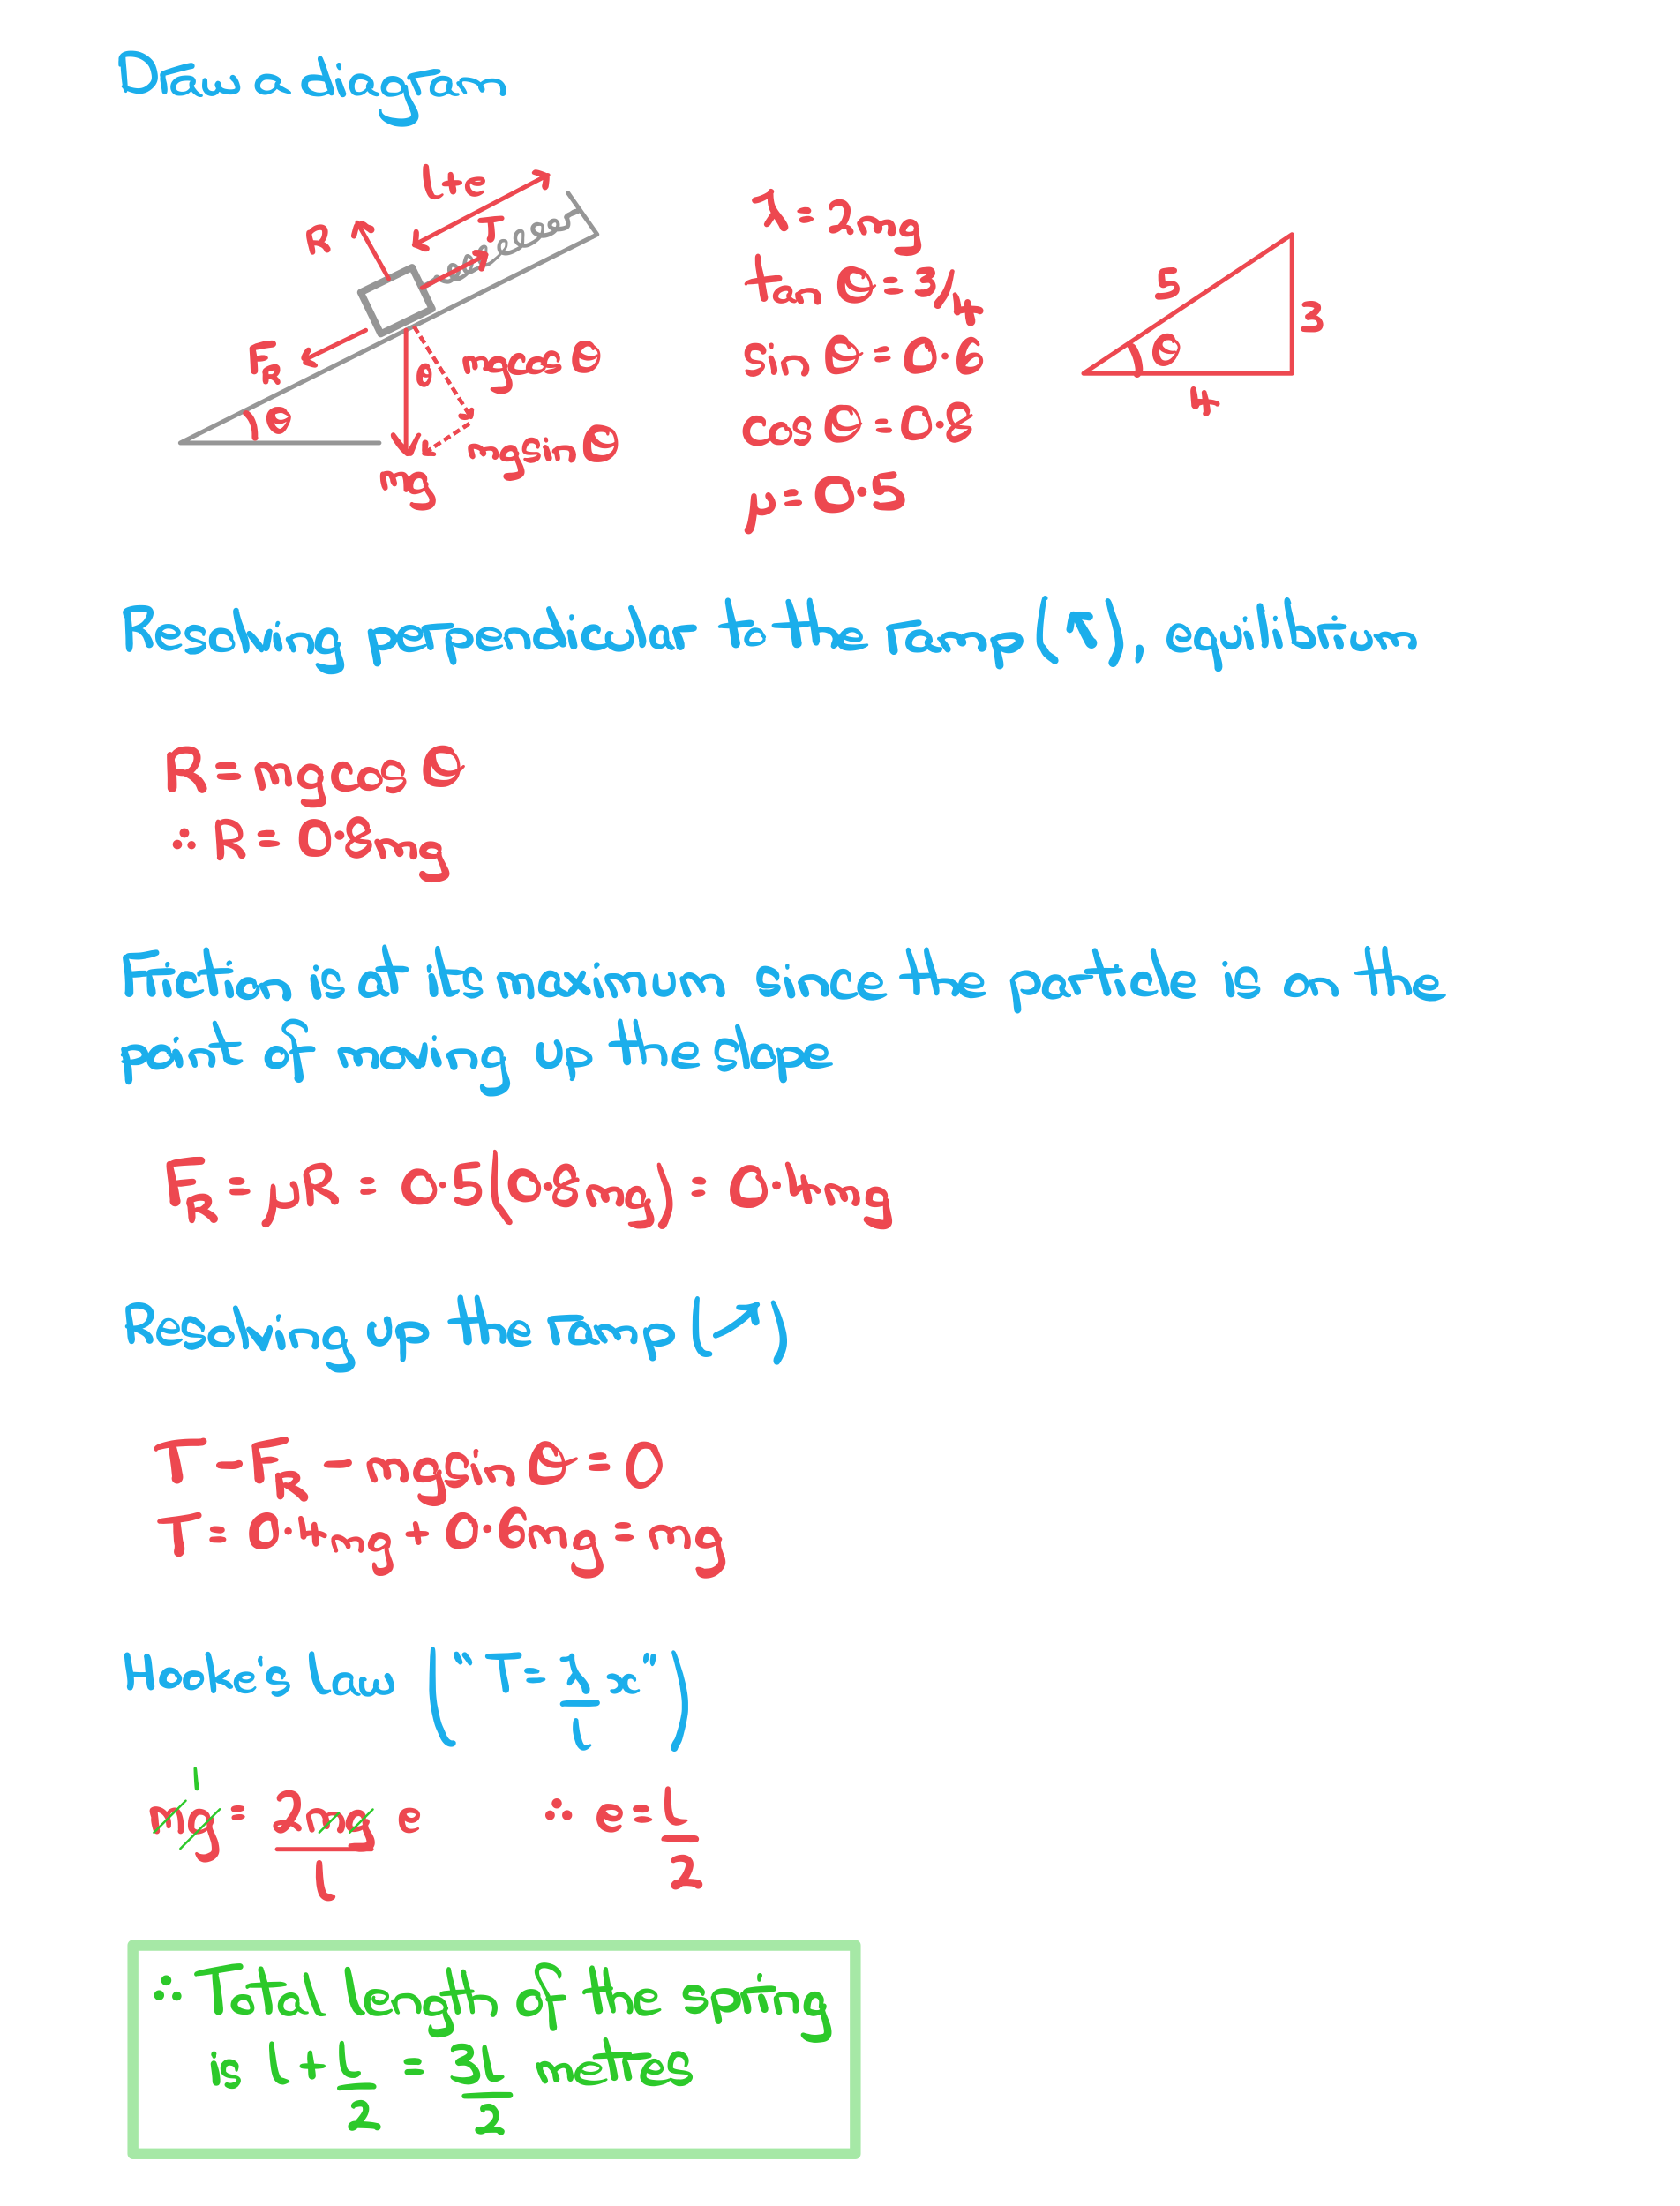 Draw a diagram
l+e
R
T
F_R
θ
θ
mgcos θ
mgsin θ
mg
λ = 2mg
tan θ = 3/4
sin θ = 0.6
cos θ = 0.8
μ = 0.5
5
3
θ
4
Resolving perpendicular to the ramp (↖), equilibrium
R = mgcos θ
∴ R = 0.8mg
Friction is at its maximum since the particle is on the
point of moving up the slope
F_R = μR = 0.5(0.8mg) = 0.4mg
Resolving up the ramp (↗)
T - F_R - mgsin θ = 0
T = 0.4mg + 0.6mg = mg
Hooke's law ("T = λ/l x")
1
mg = 2mg/l e ∴ e = l/2
∴ Total length of the spring
is l + l/2 = 3l/2 metres